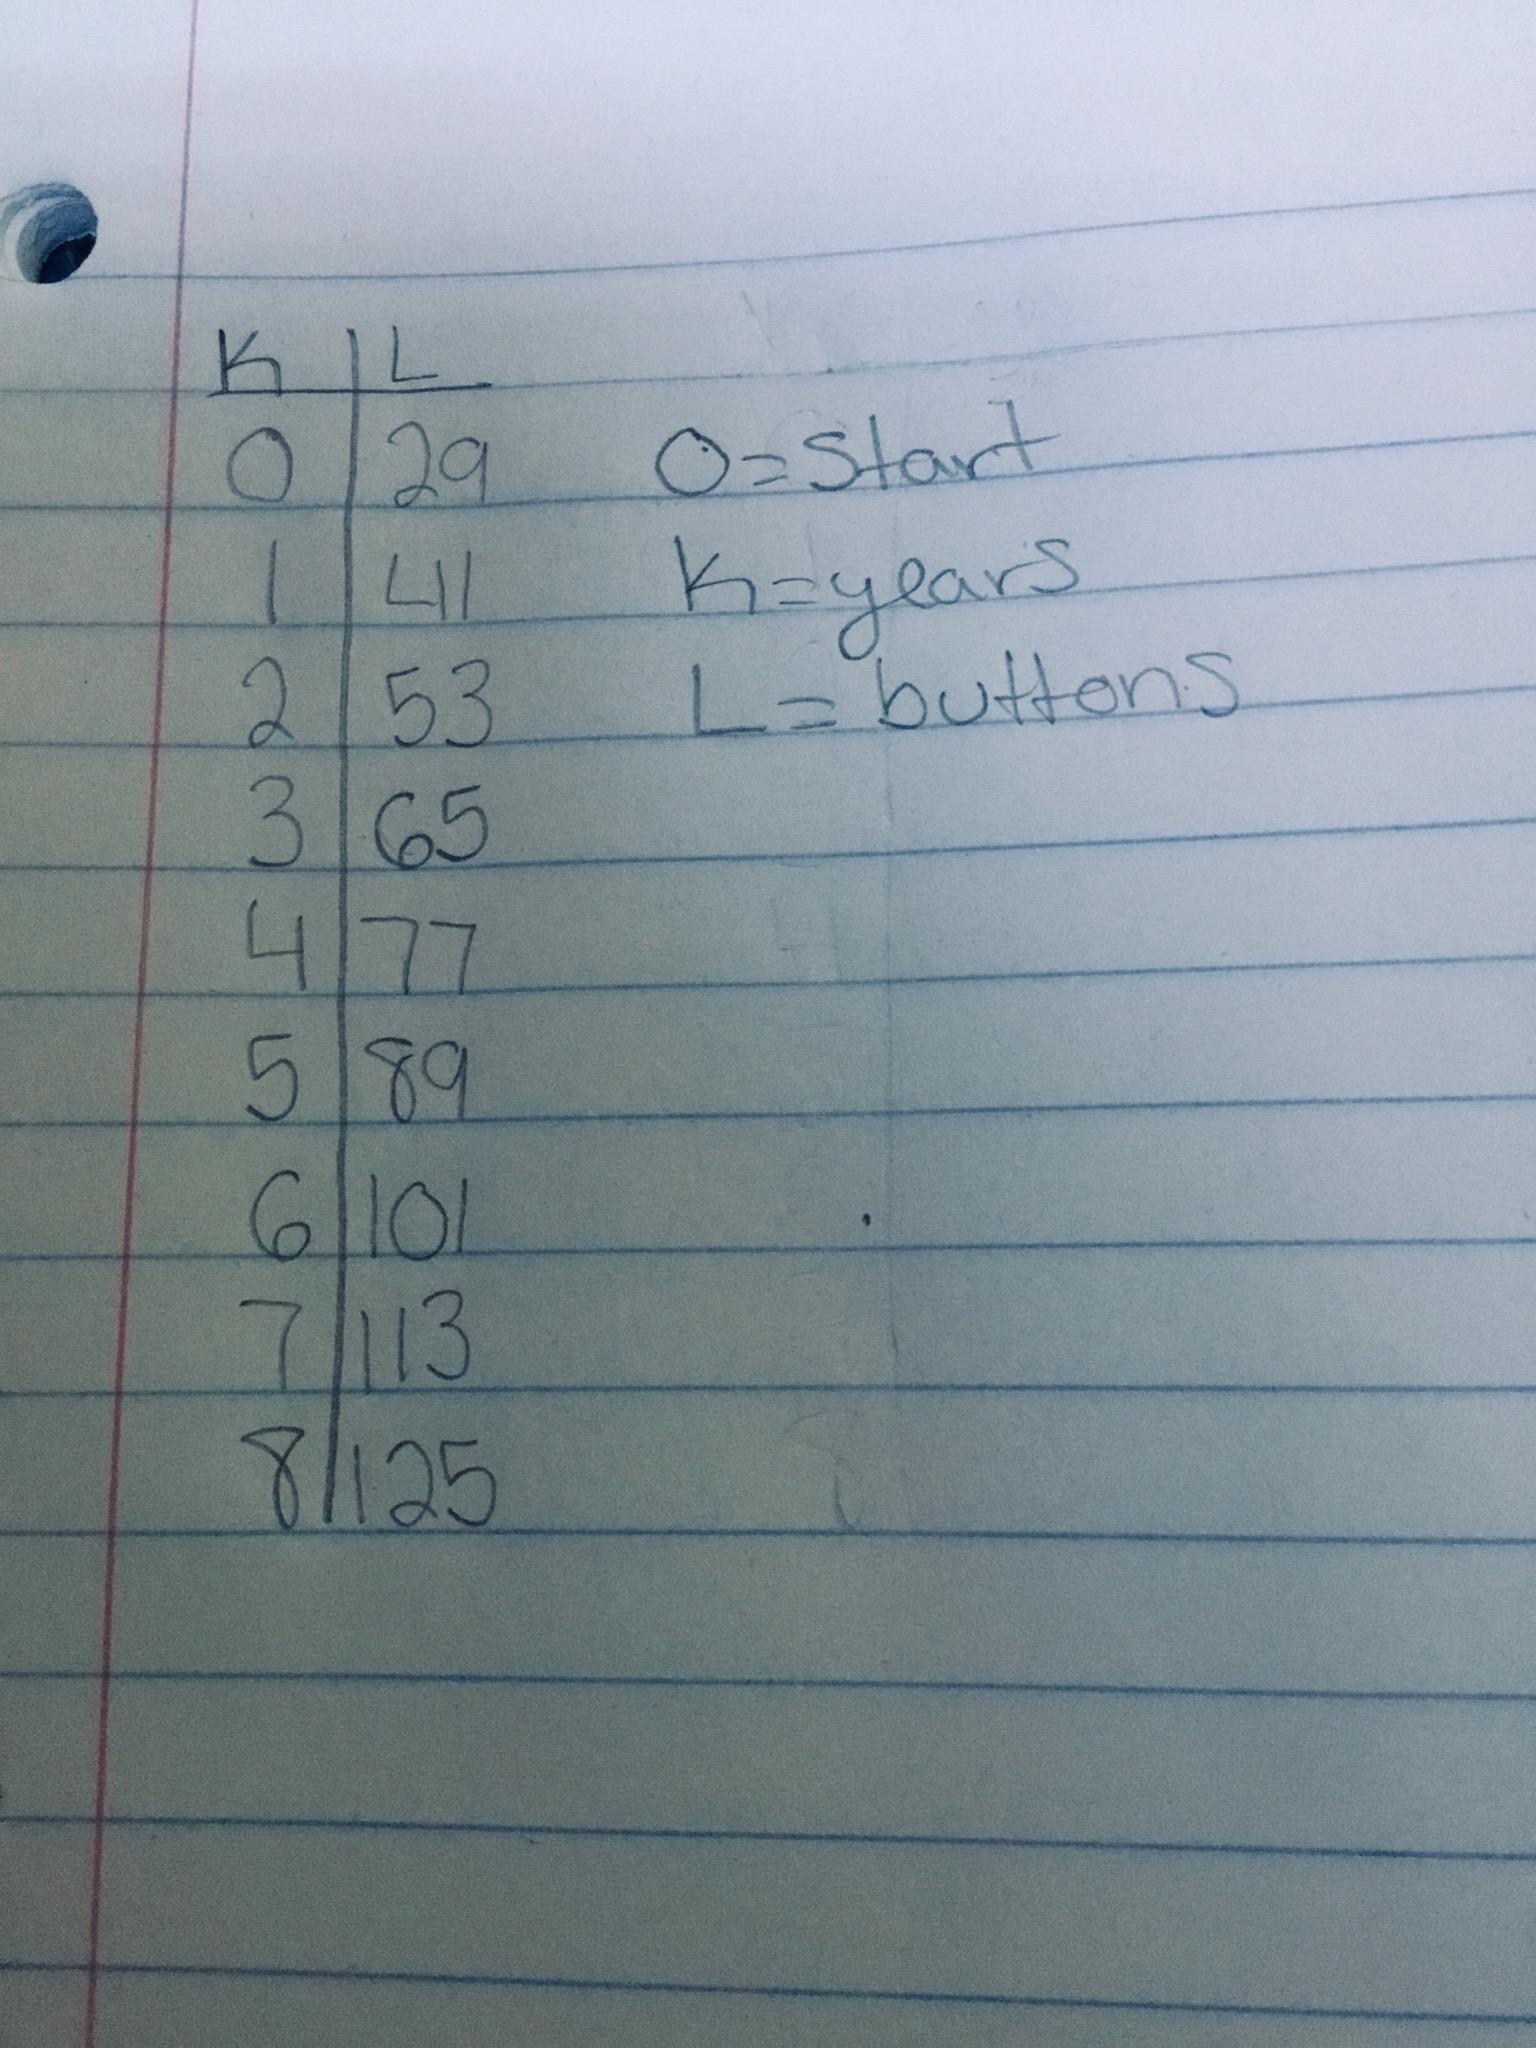 K | L
0 | 29 0=Start
1 | 41 K=years
2 | 53 L=buttons
3 | 65
4 | 77
5 | 89
6 | 101
7 | 113
8 | 125